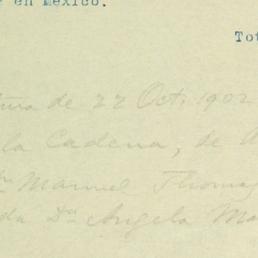 en Mexico.
Tot
de 22 Oct. 1902
la Cadena, de
Manuel Thomas
Da Angela Ma